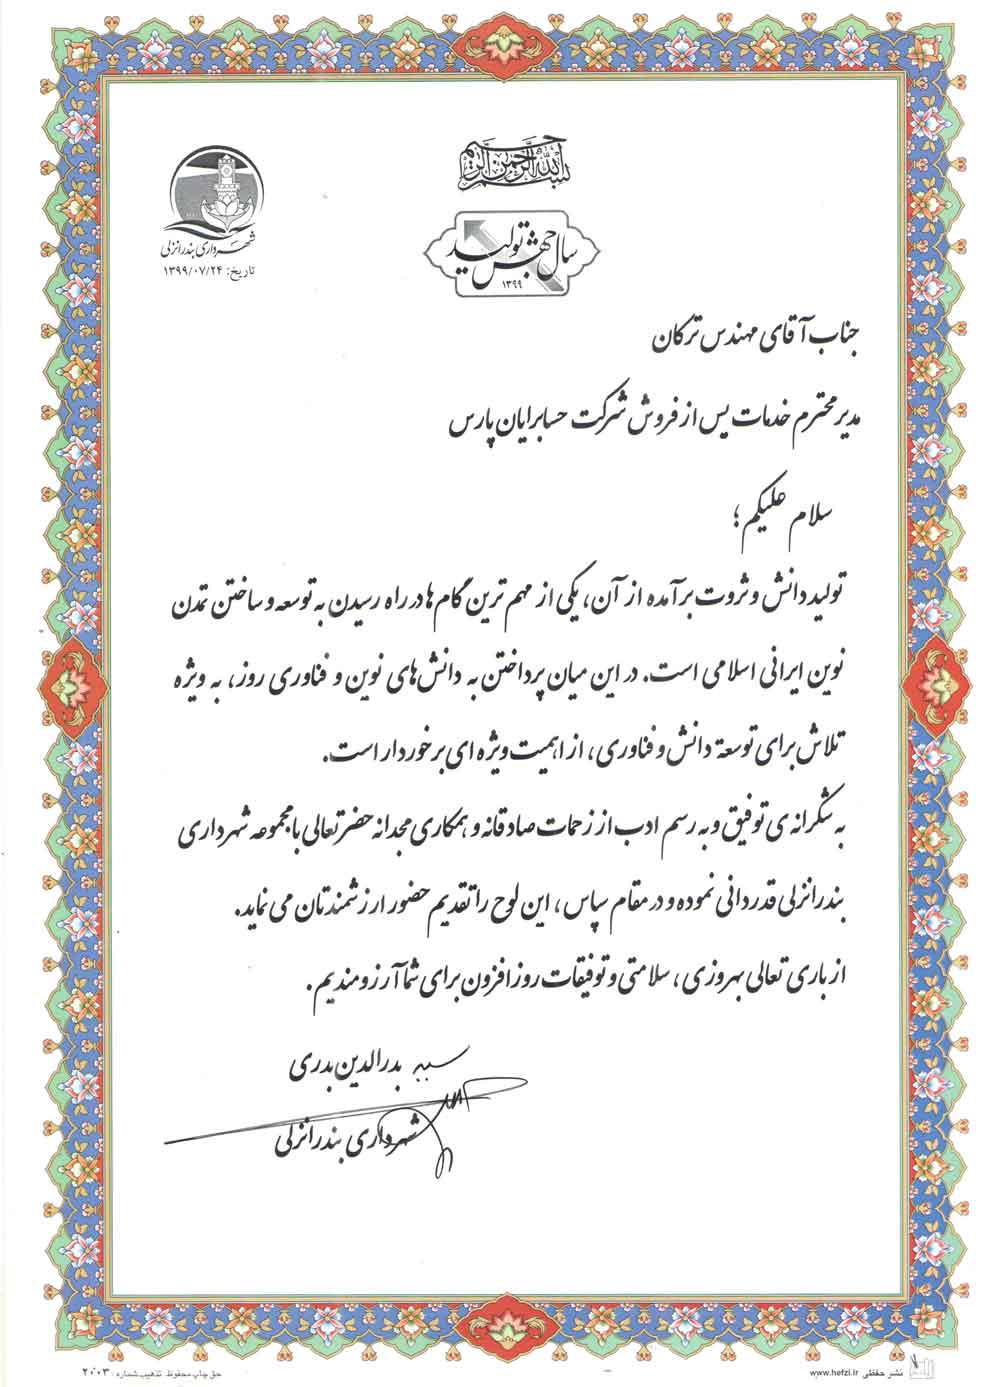 بسم الله الرحمن الرحیم
سال جهش تولید
۱۳۹۹
شهرداری بندرانزلی
تاریخ: ۱۳۹۹/۰۷/۲۴
جناب آقای مهندس ترکان
مدیر محترم خدمات پس از فروش شرکت حسابرایان پارس
سلام علیکم ؛
تولید دانش و ثروت برآمده از آن، یکی از مهم ترین گام ها در راه رسیدن به توسعه و ساختن تمدن
نوین ایرانی اسلامی است. در این میان پرداختن به دانش‌های نوین و فناوری روز، به ویژه
تلاش برای توسعۀ دانش و فناوری، از اهمیت ویژه ای برخوردار است.
به شکرانه ی توفیق و به رسم ادب از زحمات صادقانه و همکاری مجدانه حضرتعالی با مجموعه شهرداری
بندرانزلی قدردانی نموده و در مقام سپاس، این لوح را تقدیم حضور ارزشمندتان می نماید.
از باری تعالی بهروزی، سلامتی و توفیقات روزافزون برای شما آرزومندیم.
بدرالدین بدری
شهرداری بندرانزلی
نشر حفظی www.hefzi.ir
حق چاپ محفوظ. تذهیب شماره : ۲۰۰۳